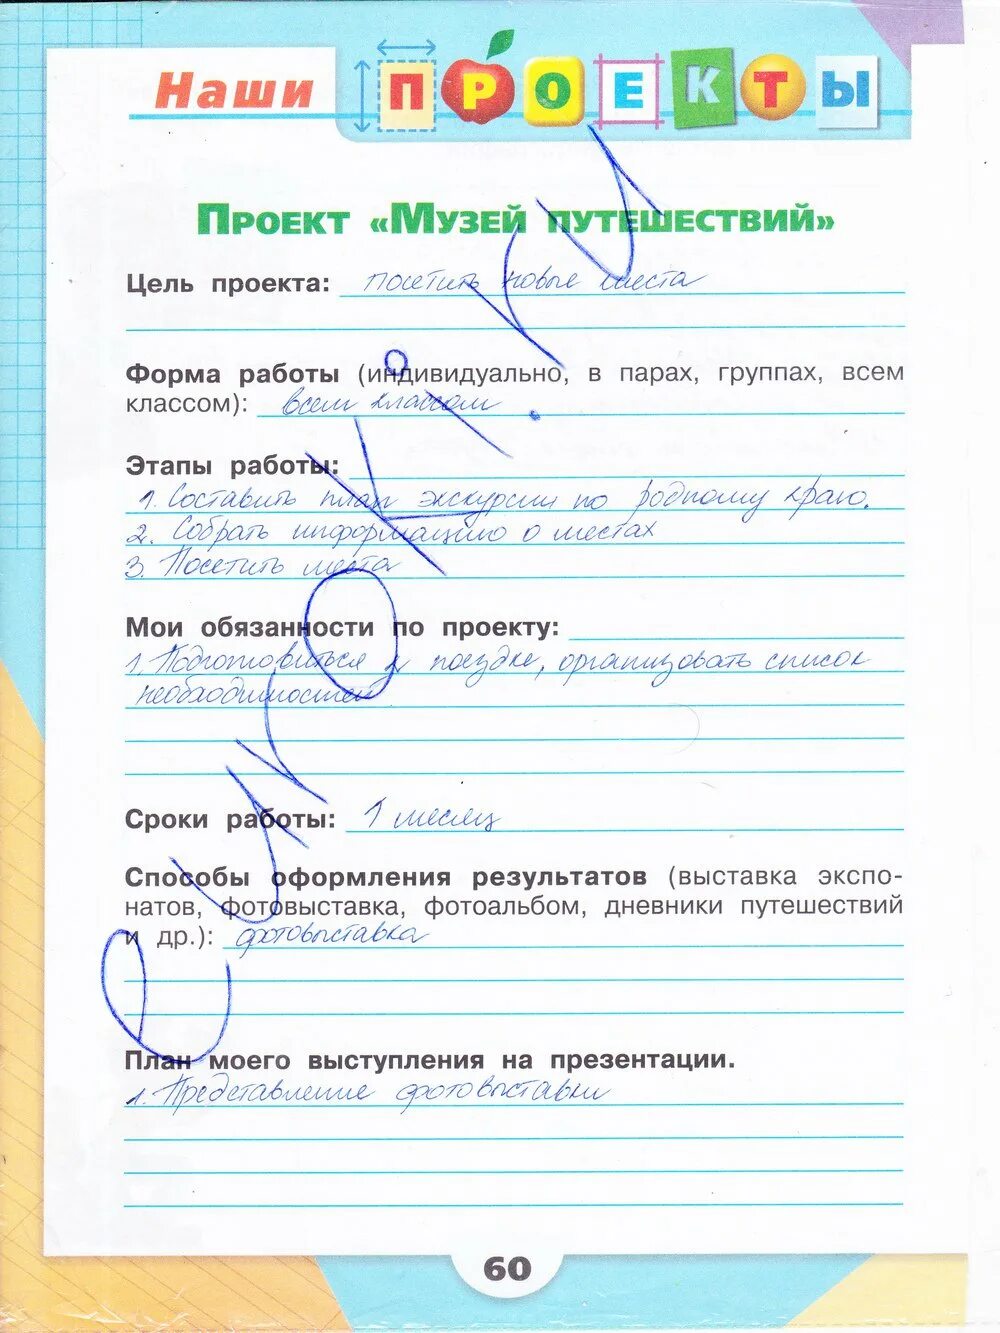 Наши ПРОЕКТЫ
ПРОЕКТ «МУЗЕЙ ПУТЕШЕСТВИЙ»
Цель проекта: посетить новые места
Форма работы (индивидуально, в парах, группах, всем
классом): всем классом
Этапы работы:
1. Составить план экскурсии по родному краю.
2. Собрать информацию о местах
3. Посетить места
Мои обязанности по проекту:
1. Подготовиться к поездке, организовать список
необходимостей
Сроки работы: 1 месяц
Способы оформления результатов (выставка экспо-
натов, фотовыставка, фотоальбом, дневники путешествий
и др.): фотовыставка
План моего выступления на презентации.
1. Представление фотовыставки
60